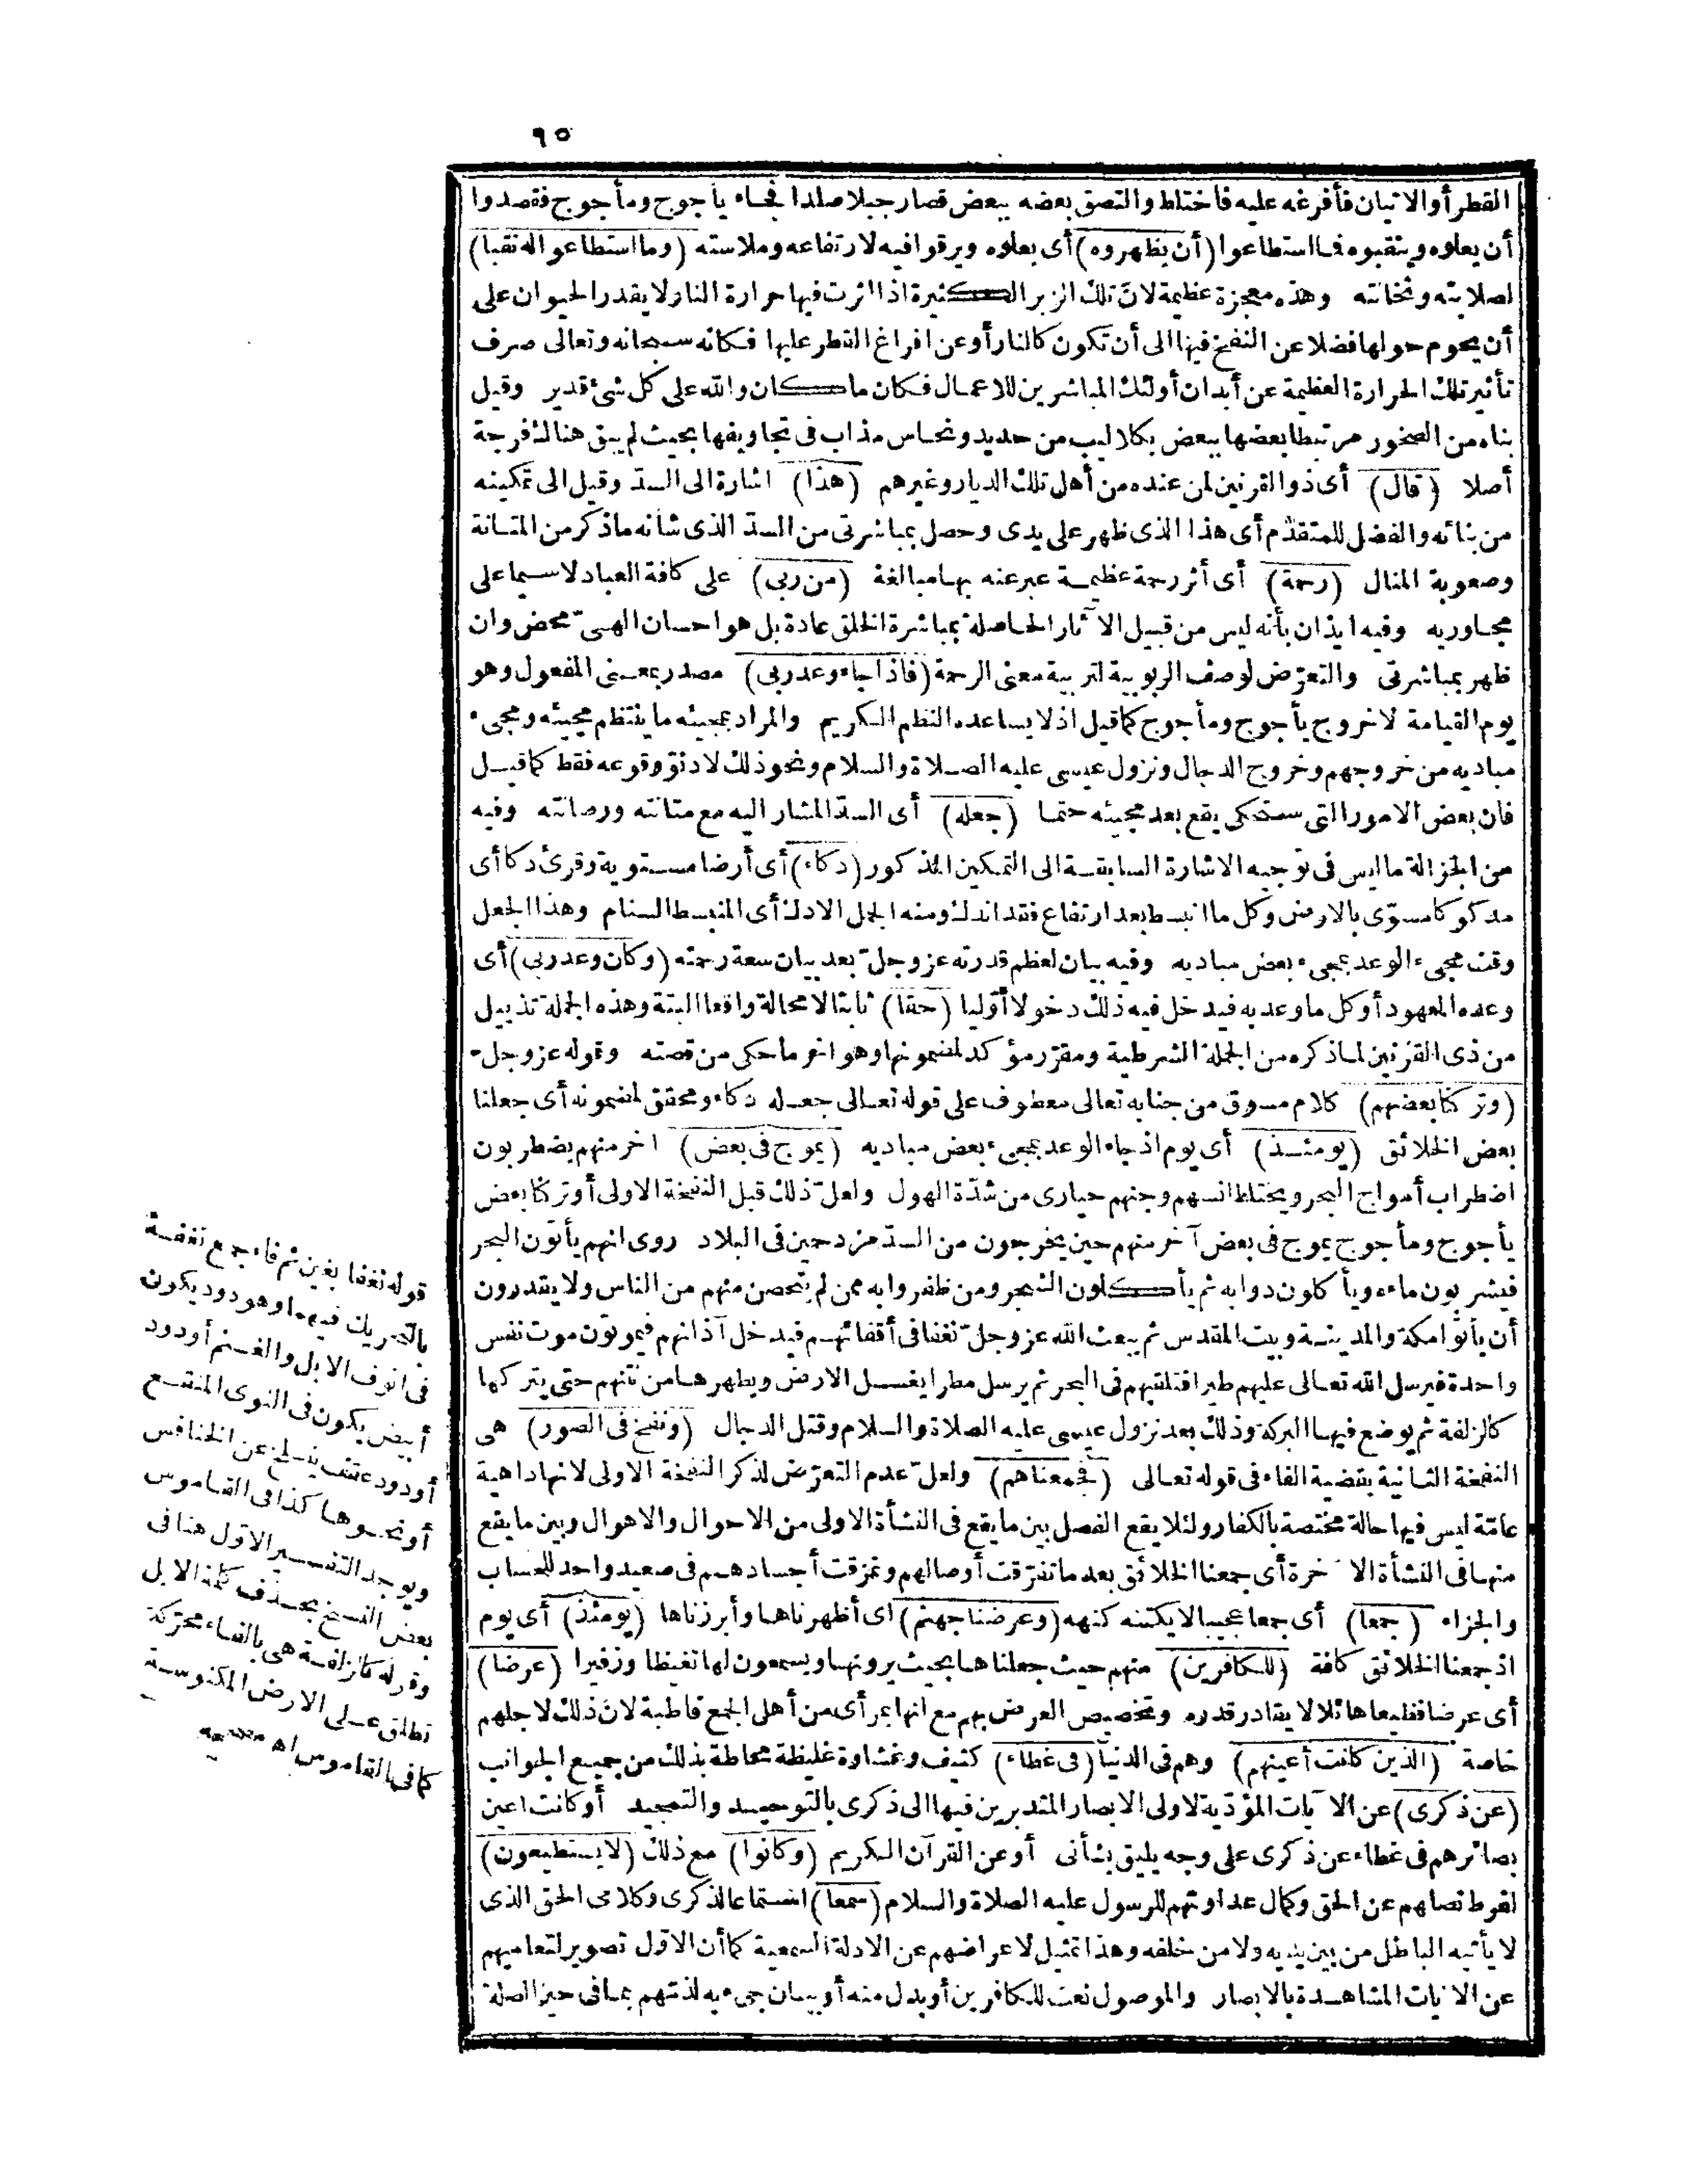 ٩٥
القطر أو الاتيان فأفرغه عليه فاختلط والتصق بعضه ببعض فصار جبلا صلدا فجاء يأجوج ومأجوج فقصدوا
أن يعلوه وينقبوه فما استطاعوا (أن يظهروه) أى يعلوه ويرقوا فيه لارتفاعه وملاسته (وما استطاعوا له نقبا)
لصلابته وثخانته وهذه معجزة عظيمة لانّ تلك الزبر الكثيرة اذا اثرت فيها حرارة النار لا يقدر الحيوان على
أن يحوم حولها فضلا عن النفخ فيها الى أن تكون كالنار أو عن افراغ القطر عليها فكانه سبحانه وتعالى صرف
تأثير تلك الحرارة العظيمة عن أبدان أولئك المباشرين للاعمال فكان ما كان والله على كل شئ قدير وقيل
بناه من الصخور مرتبطا بعضها ببعض بكلاليب من حديد ونحاس مذاب فى تجاويفها بحيث لم يبق هنالك فرجة
أصلا (قال) أى ذو القرنين لمن عنده من أهل تلك الديار وغيرهم (هذا) اشارة الى السدّ وقيل الى تمكينه
من بنائه والفضل للمتقدّم أى هذا الذى ظهر على يدى وحصل بمباشرتى من السدّ الذى شانه ماذكر من المتانة
وصعوبة المنال (رحمة) أى أثر رحمة عظيمة عبر عنه بها مبالغة (من ربى) على كافة العباد لا سيما على
مجاوريه وفيه ايذان بأنه ليس من قبيل الآثار الحاصلة بمباشرة الخلق عادة بل هو احسان الهىّ محض وان
ظهر بمباشرتى والتعرّض لوصف الربوبية لتربية معنى الرحمة (فاذا جاء وعد ربى) مصدر بمعنى المفعول وهو
يوم القيامة لا خروج يأجوج ومأجوج كما قيل اذ لا يساعده النظم الكريم والمراد بمجيئه ما ينتظم مجيئه ومجىء
مباديه من خروجهم وخروج الدجال ونزول عيسى عليه الصلاة والسلام ونحو ذلك لا دنوّ وقوعه فقط كما قيل
فان بعض الامور التى ستحكى يقع بعد مجيئه حتما (جعله) أى السدّ المشار اليه مع متانته ورصانته وفيه
من الجزالة ما ليس فى توجيه الاشارة السابقة الى التمكين المذكور (دكاء) أى أرضا مستوية وقرئ دكا أى
مدكوكا مسوّى بالارض وكل ما انبسط بعد ارتفاع فقد اندك ومنه الجمل الادك أى المنبسط السنام وهذا الجعل
وقت مجىء الوعد بمجىء بعض مباديه وفيه بيان لعظم قدرته عز وجلّ بعد بيان سعة رحمته (وكان وعد ربى) أى
وعده المعهود أو كل ما وعد به فيدخل فيه ذلك دخولا أوّليا (حقا) ثابتا لا محالة واقعا البتة وهذه الجملة تذييل
من ذى القرنين لما ذكره من الجملة الشرطية ومقرّر مؤكد لمضمونها وهو اخر ما حكى من قصته وقوله عز وجل
(وتركنا بعضهم) كلام مسوق من جنابه تعالى معطوف على قوله تعالى جعله دكاء ومحقق لمضمونه أى جعلنا
بعض الخلائق (يومئذ) أى يوم اذ جاء الوعد بمجىء بعض مباديه (يموج فى بعض) اخر منهم يضطربون
اضطراب أمواج البحر ويختلط انسهم وجنهم حيارى من شدّة الهول ولعلّ ذلك قبل النفخة الاولى أو تركنا بعض
يأجوج ومأجوج يموج فى بعض آخر منهم حين يخرجون من السدّ مزدحمين فى البلاد روى انهم يأتون البحر
فيشربون ماءه ويأكلون دوابه ثم يأكلون الشجر ومن ظفروا به ممن لم يتحصن منهم من الناس ولا يقدرون
أن يأتوا مكة والمدينة وبيت المقدس ثم يبعث الله عز وجلّ نغفا فى أقفائهم فيدخل آذانهم فيموتون موت نفس
واحدة فيرسل الله تعالى عليهم طيرا فتلقيهم فى البحر ثم يرسل مطرا يغسل الارض ويطهرها من نتنهم حتى يتركها
كالزلفة ثم يوضع فيها البركة وذلك بعد نزول عيسى عليه الصلاة والسلام وقتل الدجال (ونفخ فى الصور) هى
النفخة الثانية بقضية الفاء فى قوله تعالى (فجمعناهم) ولعلّ عدم التعرّض لذكر النفخة الاولى لانها داهية
عامّة ليس فيها حالة مختصة بالكفار ولئلا يقع الفصل بين ما يقع فى النشأة الاولى من الاحوال والاهوال وبين ما يقع
منها فى النشأة الآخرة أى جمعنا الخلائق بعد ما تفرّقت أوصالهم وتمزقت أجسادهم فى صعيد واحد للحساب
والجزاء (جمعا) أى جمعا عجيبا لا يكتنه كنهه (وعرضنا جهنم) أى أظهرناها وأبرزناها (يومئذ) أى يوم
اذ جمعنا الخلائق كافة (للكافرين) منهم حيث جعلناها بحيث يرونها ويسمعون لها تغيظا وزفيرا (عرضا)
أى عرضا فظيعا هائلا لا يقادر قدره وتخصيص العرض بهم مع انها بمرأى من أهل الجمع قاطبة لان ذلك لاجلهم
خاصة (الذين كانت أعينهم) وهم فى الدنيا (فى غطاء) كثيف وغشاوة غليظة محاطة بذلك من جميع الجوانب
(عن ذكرى) عن الآيات المؤدّية لاولى الابصار المتدبرين فيها الى ذكرى بالتوحيد والتمجيد أو كانت اعين
بصائرهم فى غطاء عن ذكرى على وجه يليق بشأنى أو عن القرآن الكريم (وكانوا) مع ذلك (لا يستطيعون)
لفرط تصامّهم عن الحق وكمال عداوتهم للرسول عليه الصلاة والسلام (سمعا) استماعا لذكرى وكلامى الحق الذى
لا يأتيه الباطل من بين يديه ولا من خلفه وهذا تمثيل لاعراضهم عن الادلة السمعية كما أن الاوّل تصوير لتعاميهم
عن الآيات المشاهدة بالابصار والموصول نعت للكافرين أو بدل منه أو بيان جىء به لذمّهم بما فى حيز الصلة
قوله نغفا بغين ثم فاء جمع نغفة
بالتحريك فيهما وهو دود يكون
فى انوف الابل والغنم أو دود
أبيض يكون فى النوى المنقع
أو دود عقف ينسلخ عن الخنافس
أو نحوها كذا فى القاموس
ويوجد التفسير الاوّل هنا فى
بعض النسخ بحذف كلمة الابل
وقوله كالزلفة هى بالفاء محرّكة
تطلق على الارض المكنوسة
كما فى القاموس اه مصححه